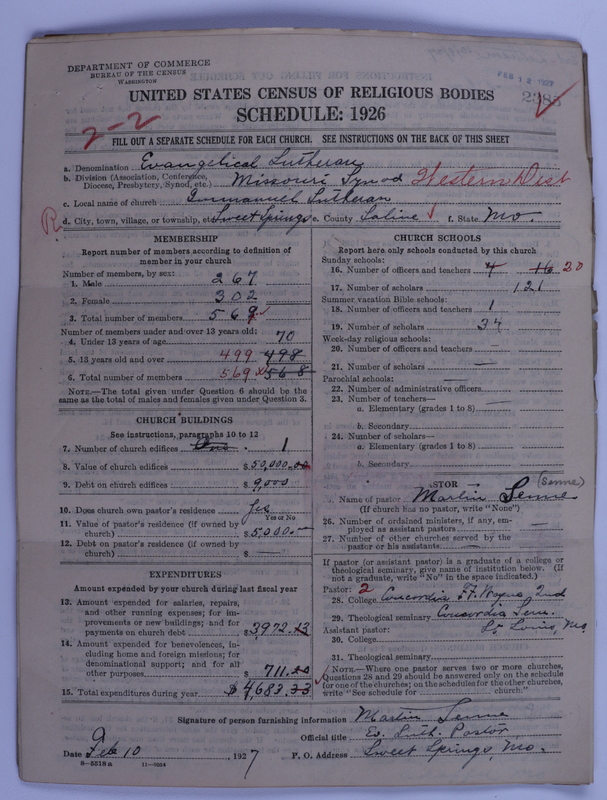 DEPARTMENT OF COMMERCE
BUREAU OF THE CENSUS
WASHINGTON
FEB 18 1927
2385
UNITED STATES CENSUS OF RELIGIOUS BODIES
SCHEDULE: 1926
2-2
FILL OUT A SEPARATE SCHEDULE FOR EACH CHURCH. SEE INSTRUCTIONS ON THE BACK OF THIS SHEET
a. Denomination Evangelical Lutheran
b. Division (Association, Conference, Diocese, Presbytery, Synod, etc.) Missouri Synod Western Dist
c. Local name of church Immanuel Lutheran
R
d. City, town, village, or township, etc. Sweet Springs e. County Saline f. State Mo.
MEMBERSHIP
Report number of members according to definition of
member in your church
Number of members, by sex:
1. Male 267
2. Female 302
3. Total number of members 569
Number of members under and over 13 years old:
4. Under 13 years of age 70
5. 13 years old and over 499 498
6. Total number of members 569 568
NOTE.—The total given under Question 6 should be the
same as the total of males and females given under Question 3.
CHURCH BUILDINGS
See instructions, paragraphs 10 to 12
7. Number of church edifices One 1
8. Value of church edifices $50,000.00
9. Debt on church edifices $9,000
10. Does church own pastor's residence? Yes
Yes or No
11. Value of pastor's residence (if owned by
church) $5,000.—
12. Debt on pastor's residence (if owned by
church) $ —
EXPENDITURES
Amount expended by your church during last fiscal year
13. Amount expended for salaries, repairs,
and other running expenses; for im-
provements or new buildings; and for
payments on church debt $3972.13
14. Amount expended for benevolences, in-
cluding home and foreign missions; for
denominational support; and for all
other purposes $711.20
15. Total expenditures during year $4,683.33
CHURCH SCHOOLS
Report here only schools conducted by this church
Sunday schools:
16. Number of officers and teachers 4 16 20
17. Number of scholars 121
Summer vacation Bible schools:
18. Number of officers and teachers 1
19. Number of scholars 34
Week-day religious schools:
20. Number of officers and teachers —
21. Number of scholars —
Parochial schools:
22. Number of administrative officers —
23. Number of teachers—
a. Elementary (grades 1 to 8) —
b. Secondary
24. Number of scholars—
a. Elementary (grades 1 to 8) —
b. Secondary
STOR
Name of pastor Martin Senne (Senne)
(If church has no pastor, write "None")
26. Number of ordained ministers, if any, em-
ployed as assistant pastors —
27. Number of other churches served by the
pastor or his assistants —
If pastor (or assistant pastor) is a graduate of a college or
theological seminary, give name of institution below. (If
not a graduate, write "No" in the space indicated.)
Pastor: 2
28. College Concordia Ft. Wayne, Ind
29. Theological seminary Concordia Sem.
Assistant pastor: St Louis, Mo
30. College
31. Theological seminary
NOTE.—Where one pastor serves two or more churches,
Questions 28 and 29 should be answered only on the schedule
for one of the churches; on the schedules for the other churches,
write "See schedule for church."
Signature of person furnishing information Martin Senne
Official title Ev. Luth. Pastor
Date Feb 10, 1927 P. O. Address Sweet Springs, Mo.
8-5518a 11-9034